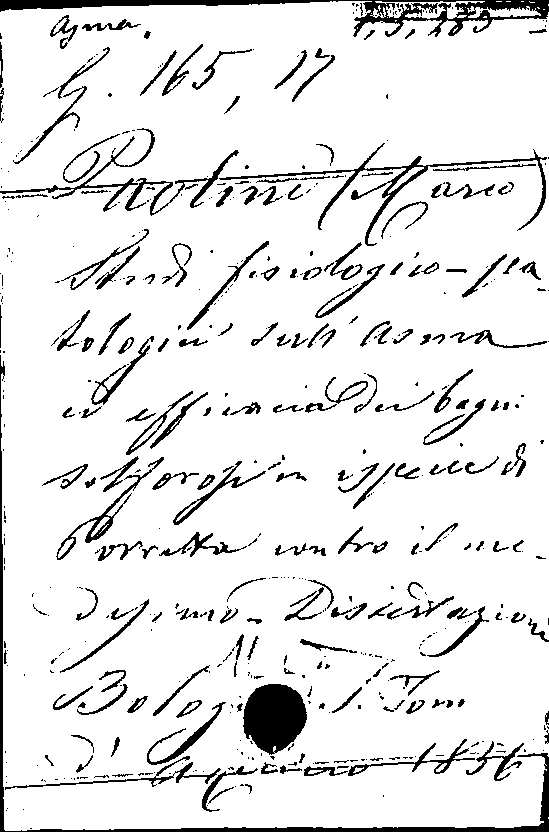 Asma.
1, 5, 283
G. 165, 17
Paolini (Marco)
Studi fisiologico-pa-
tologici sull' asma
ed efficacia dei bagni
solforosi in ispecie di
Porretta contro il me-
desimo - Dissertazioni
Bologna S. Tom
d' Aquino 1856